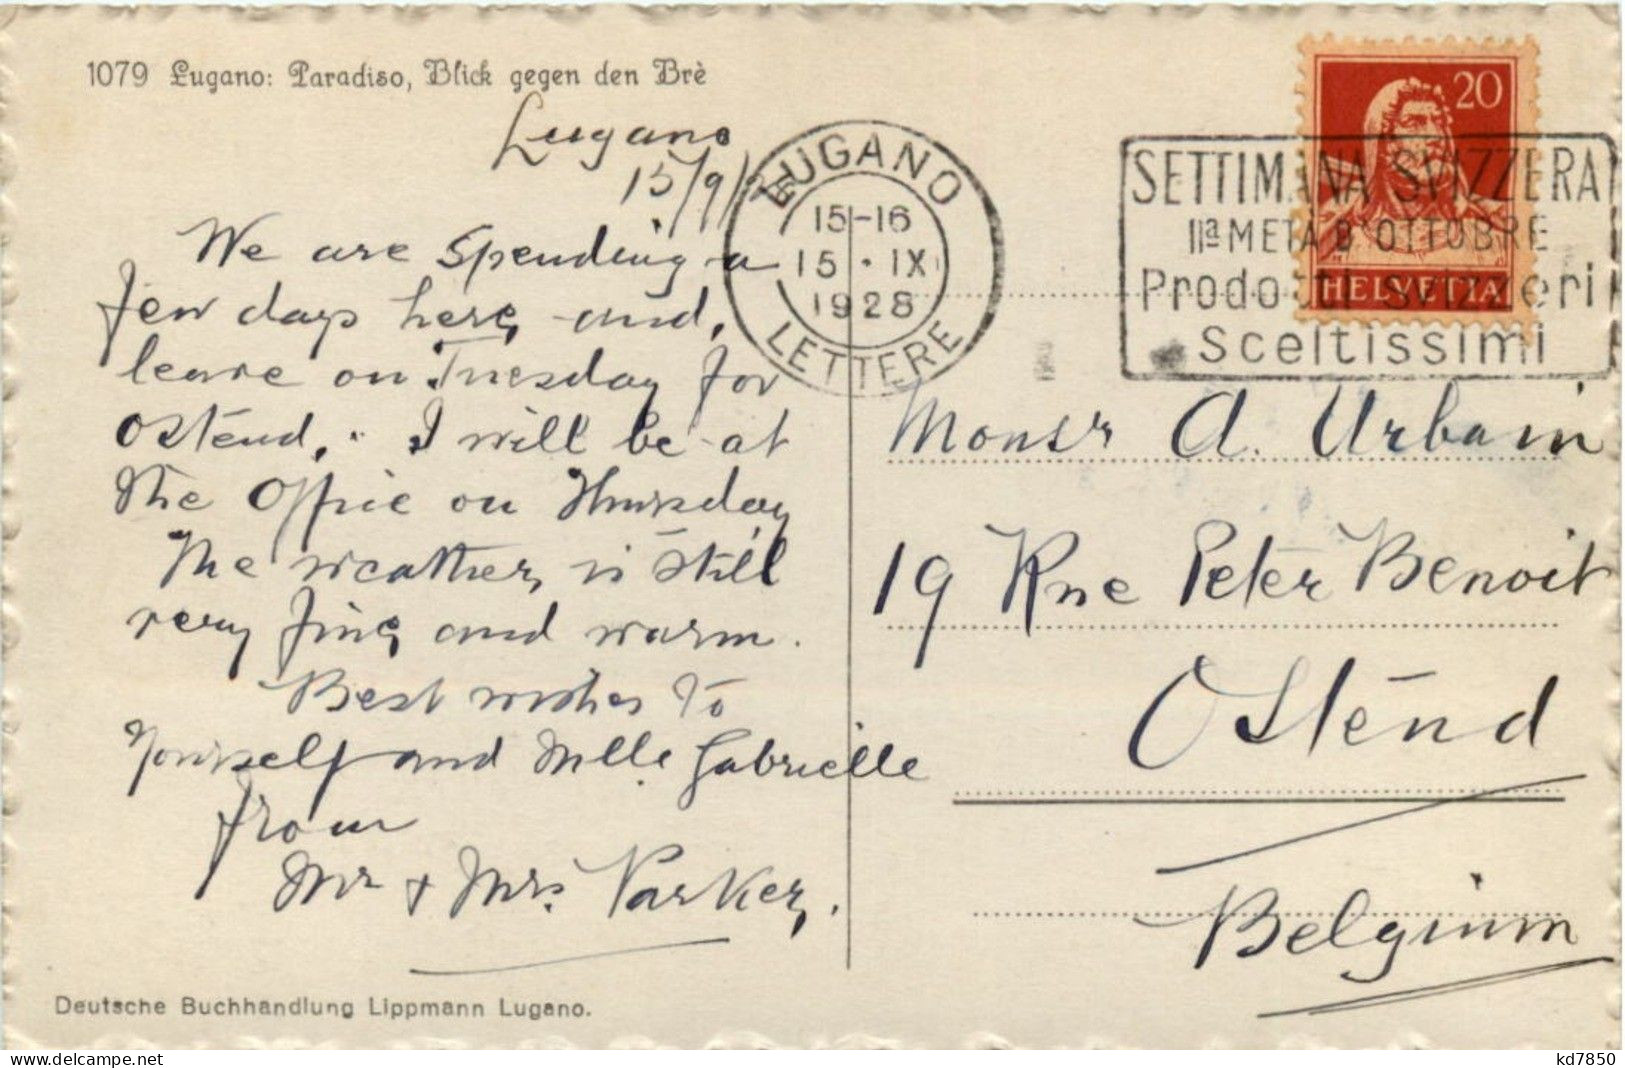 1079 Lugano: Paradiso, Blick gegen den Brè
Lugano
15/9/28
We are spending a
few days here, and,
leave on Tuesday for
Ostend. I will be at
the Office on Thursday
The weather, is still
very fine, and warm.
Best wishes to
yourself and Mlle Gabrielle
from
Mr + Mrs. Parker.
LUGANO
15-16
15 · IX
1928
LETTERE
20
HELVETIA
SETTIMANA SVIZZERA
IIa METÀ D'OTTOBRE
Prodotti svizzeri
Sceltissimi
Monsr A. Urbain
19 Rue Peter Benoit
Ostend
Belgium
Deutsche Buchhandlung Lippmann Lugano.
delcampe.net
kd7850